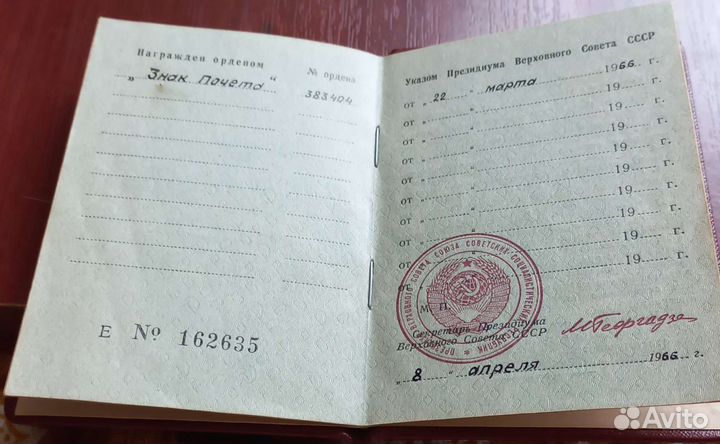 Награжден орденом
№ ордена
„ Знак Почета “
383404
Е № 162635
Указом Президиума Верховного Совета СССР
от „ 22 “ марта 1966 г.
от „ “ 19 г.
от „ “ 19 г.
от „ “ 19 г.
от „ “ 19 г.
от „ “ 19 г.
от „ “ 19 г.
от „ “ 19 г.
от „ “ 19 г.
от 19 г.
М. П.
Секретарь Президиума
Верховного Совета СССР
М Георгадзе
„ 8 “ апреля 1966 г.
ВЕРХОВНОГО СОВЕТА СОЮЗА СОВЕТСКИХ СОЦИАЛИСТИЧЕСКИХ
Avito